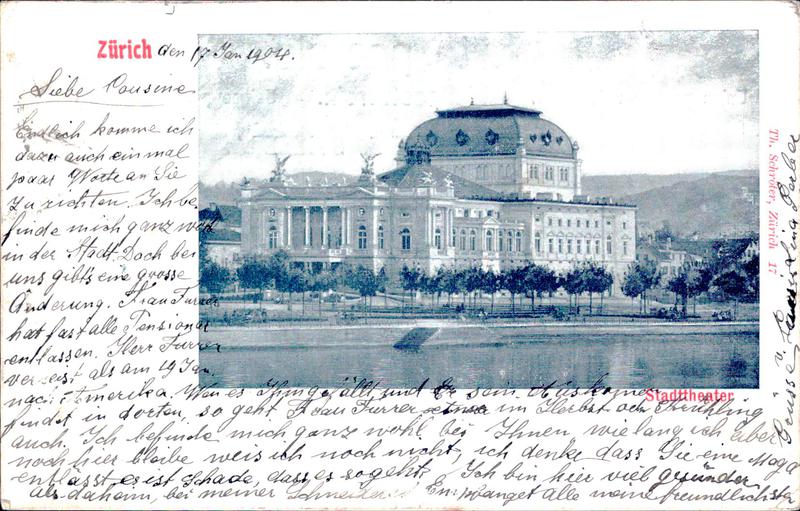 Zürich den 17 Jan 1904.
Liebe Cousine
Endlich komme ich
dazu auch einmal
paar Worte an Sie
zu richten. Ich be
finde mich ganz wohl
in der Stadt. Doch bei
uns gibt's eine grosse
Änderung. Frau Furrer
hat fast alle Pensionär
entlassen. Herr Furrer
verreist als am 19 Jan.
nach Amerika. Wen es Ihm gefällt und Er sein Auskommen
findet in dorten, so geht Frau Furrer im Herbst oder Frühling
auch. Ich befinde mich ganz wohl bei Ihnen wie lang ich aber
noch hier bleibe weis ich noch nicht, ich denke dass Sie eine Magd
entlasst es ist Schade, dass es so geht. Ich bin hier viel gesünder
als daheim, bei meiner Schneiderei Empfanget alle meine freundlichster
Grüsse v.
Stadttheater
Th. Schröter, Zürich 17